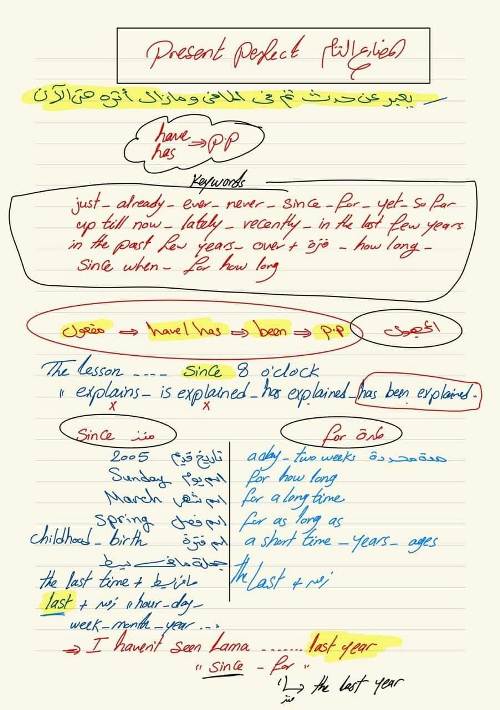 Present Perfect المضارع التام
يعبر عن حدث تم في الماضي ومازال أثره حتى الآن
have
has → p.p
Keywords
just - already - ever - never - since - for - yet - so far
up till now - lately - recently - in the last few years
in the past few years - over + فترة - how long -
since when - for how long
مفعول → have/has → been → p.p المجهول
The lesson .... since 8 o'clock
" explains - is explained - has explained - has been explained.
x x
since منذ
2005 تاريخ قديم
Sunday اسم يوم
March اسم شهر
Spring اسم فصل
childhood - birth اسم فترة
جملة ماضي بسيط
the last time + ماضي بسيط
last + زمن "hour - day -
week - month - year ...
for لمدة
a day - two weeks مدة محددة
for how long
for a long time
for as long as
a short time - years - ages
the last + زمن
→ I haven't seen Lama ....... last year
" since - for "
the last year